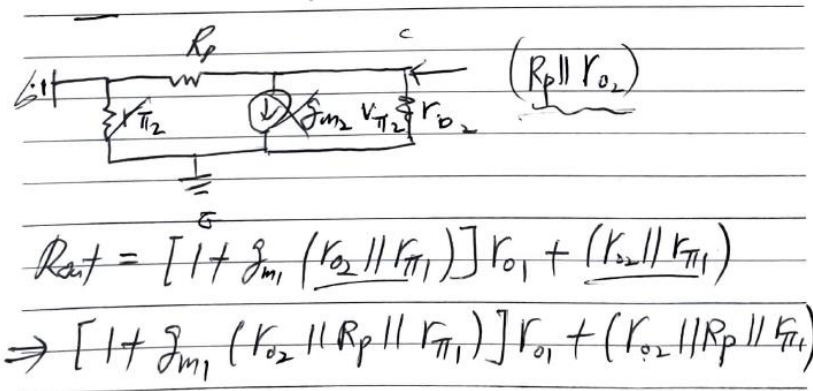 R_p
c
(R_p || r_o2)
r_π2
g_m2 V_π2
r_o2
R_out = [1 + g_m1 (r_o2 || r_π1)] r_o1 + (r_o2 || r_π1)
⇒ [1 + g_m1 (r_o2 || R_p || r_π1)] r_o1 + (r_o2 || R_p || r_π1)